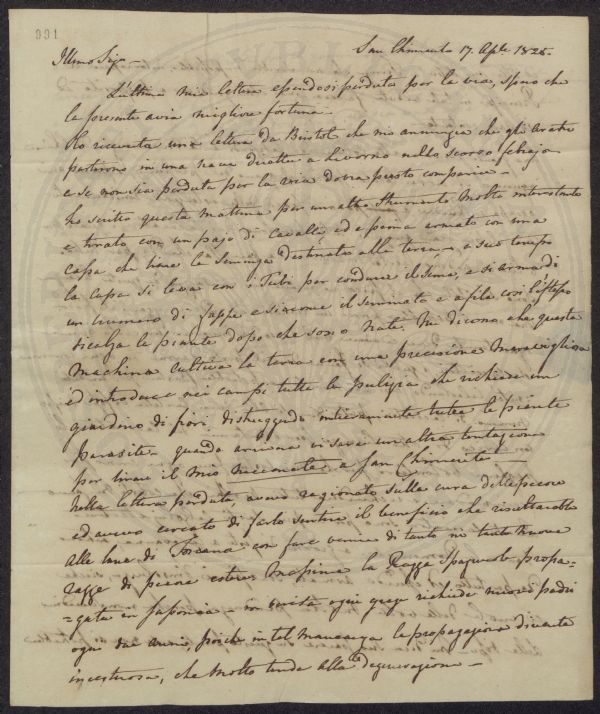 991
Illmo Sigr —
San Chimento 17. Aple 1825.
L'ultima mia lettera essendosi perduta per la via, spero che
la presente avia migliore fortuna.
Ho ricevuta una lettera da Bristol che mi annunzia che gli aratri
partirono in una nave diretta a Livorno nello scorso febrajo
e se non sia perduta per la via dovra presto comparire —
ho scritto questa mattina per un altro Strumento molto interessante
e tirato con un pajo di cavalli, ed e prima armato con una
cassa che tiene la semenza destinata alla terra, a suo tempo
la cassa si leva con i Tubi per condurre il seme, e si arma di
un numero di zappe e siccome il seminato e a fila così l'istesso
sicolga le piante dopo che sono nate. Mi dicono che questa
Machina cultiva la terra con una precisione maravigliosa
ed introduce nei campi tutta la pulizia, che richiede un
giardino di fiori, distruggendo intieramente tutte le piante
Parasite — quando arrivera vi sara un altra tentazione
per tirare il mio a San Chimento —
Nella lettera perduta, avevo ragionato sulla cura delle pecore
ed avevo cercato di farlo sentire il beneficio che risulterebbe
alle lane di Toscana con fare venire di tanto in tanto nuove
razze di pecore estere Massima la Razza Spagnuola propa-
=gata in Saponia — in verità ogni gregge richiede nuovi padri
ogni due anni, poiche in tal mancanza la propagazione diventa
incestuosa, che molto tende alla degenerazione —